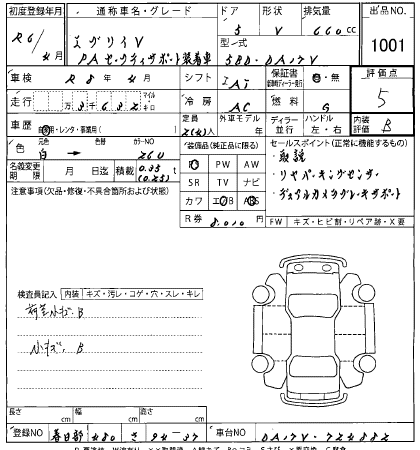 初度登録年月 通称車名・グレード ドア 形状 排気量 出品NO.
R6/4月 エブリイV 5 V 660cc
1001
PA セーフティサポート装着車
型式 5BD-DA17V
車検 R8年4月 シフト IAT 保証書 有・無 評価点
走行 マイル キロ 冷房 AC 燃料 G 5
車歴 自家用・レンタ・事業用 定員 2(4)人 外車モデル 年 ディーラー 並行 ハンドル 左・右 内装評価 B
色 元色 白 → 色替 カラーNO Z6U
名義変更期限 月 日迄 積載 0.35(0.25) t
装備品(純正品に限る) セールスポイント(正常に機能するもの)
注意事項(欠品・修復・不具合箇所および状態)
PS PW AW
・取説
SR TV ナビ
・リヤパーキングセンサー
カワ エアB ABS
・デュアルカメラブレーキサポート
R券 8,010円 FW キズ・ヒビ割・リペア跡・X要
検査員記入 内装 キズ・汚レ・コゲ・穴・スレ・キレ
荷室小キズ.B
小キズ.B
長さ cm 幅 cm 高さ cm
登録NO 春日部 480 さ 車台NO DA17V-724882